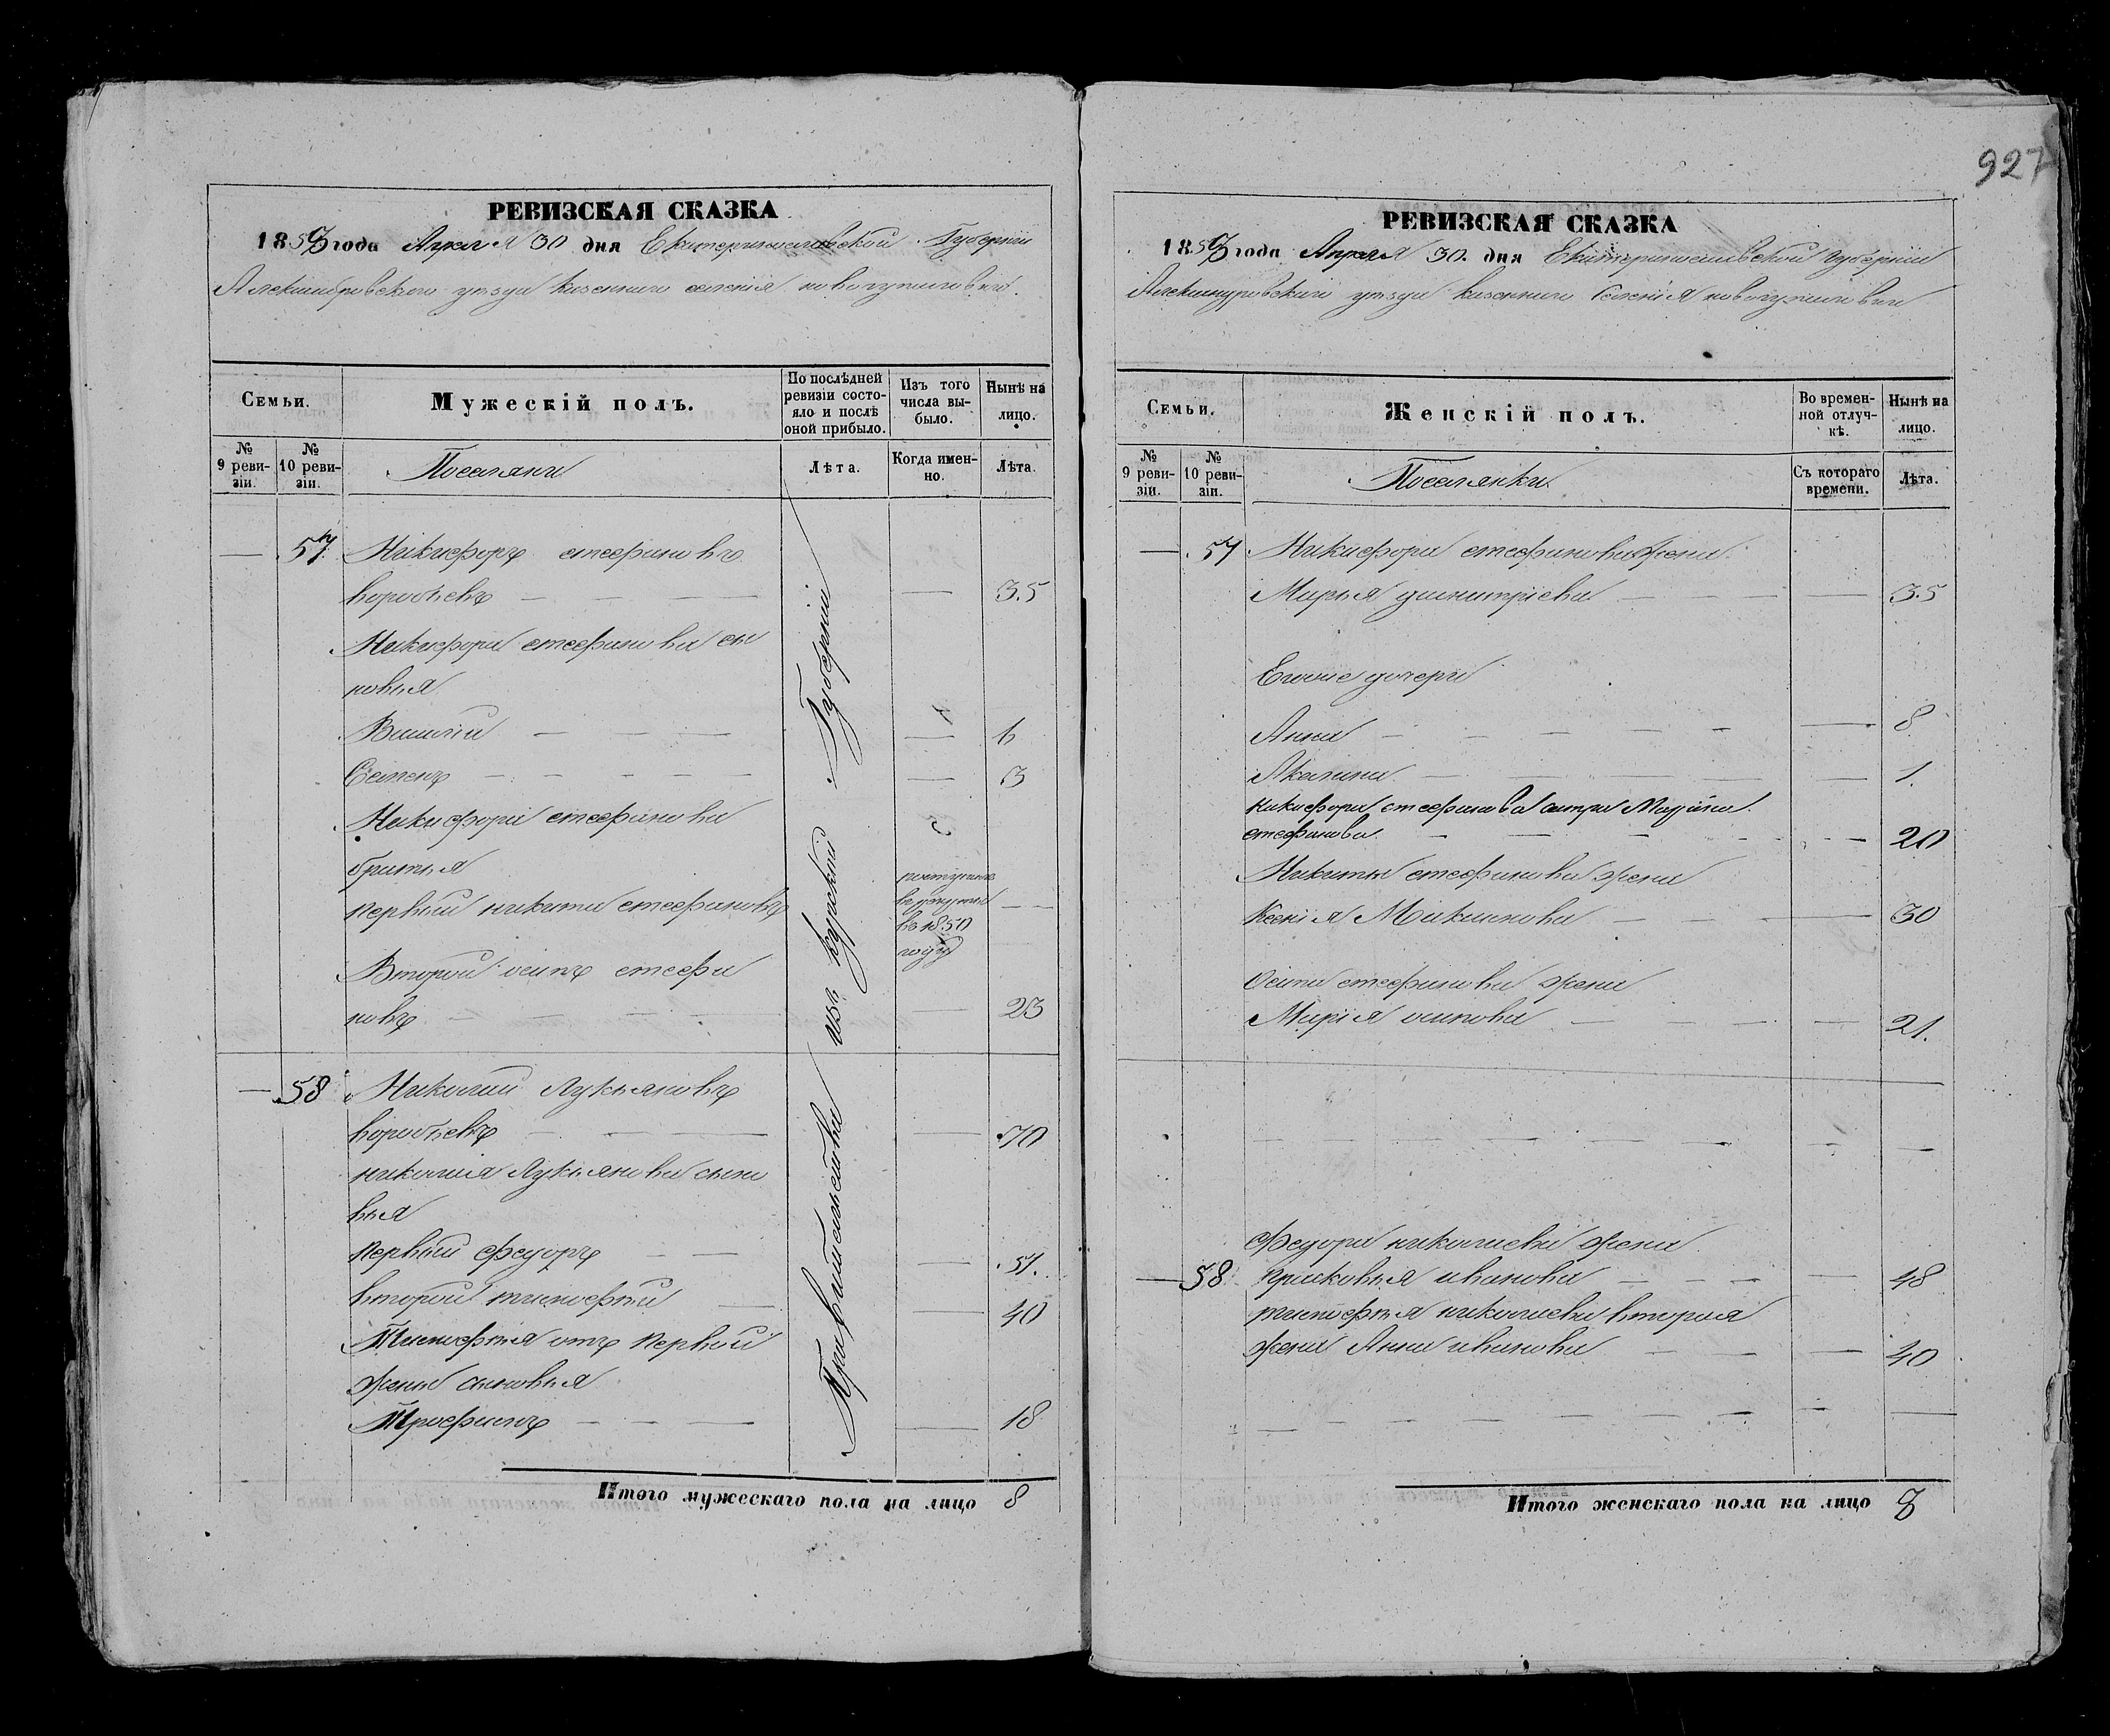 РЕВИЗСКАЯ СКАЗКА
1858 года Апреля 30 дня Екатеринославской Губерніи
Александровскаго уезда казеннаго селенія
Семьи.
Мужескій полъ.
По послѣдней ревизіи состояло и послѣ оной прибыло.
Изъ того числа выбыло.
Нынѣ на лицо.
№ 9 ревизіи.
№ 10 ревизіи.
Поселяне
Лѣта.
Когда именно.
Лѣта.
57 Никифоръ стефановъ
воробьевъ 35
Никифора стефанова сы
новья
Василій 6
Семенъ 3
Никифора стефанова
братья
первый никита стефановъ
поступилъ
в рекруты
въ 1850
году
Второй осипъ стефа
новъ 23
58 Николай Лукьяновъ
воробьевъ 70
николая Лукьянова сыно
вья
первый федоръ 51.
второй тимофей 40
Тимофея отъ первой
жены сыновья
Трофимъ 18
из курской Губерніи
Итого мужескаго пола на лицо 8
927
РЕВИЗСКАЯ СКАЗКА
1858 года Апреля 30. дня Екатеринославской губерніи
Александровскаго уезда казеннаго селенія
Семьи.
Женскій полъ.
Во временной отлучкѣ.
Нынѣ на лицо.
№ 9 ревизіи.
№ 10 ревизіи.
Поселянки
Съ котораго времени.
Лѣта.
57 Никифора стефанова жена
Марья дмитріева 35
Еговые дочери
Анна 8
Акилина 1.
никифора стефанова сестра
стефанова 20
Никиты стефанова жена
Ксенія 30
Осипа стефанова жена
Марія осипова 21.
Федора николаева жена
58 прасковья иванова 48
тимофея николаева вторая
жена Анна иванова 40
Итого женскаго пола на лицо 8